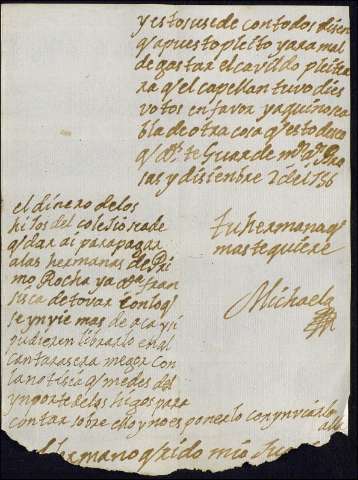 y esto susede con todos disen
q a puesto pleito yara mal
de gastar el cavildo pleitea
ra q el capellan tuvo dies
votos en favor y aqui no sea
bla de otra cosa q esto deseo
q Ds te Guarde ms as
sas y disiembre 2 de 1736
tu hermana q
mas te quiere
Michaela
el dinero de los
hijos del colejio sea de
q dar ai para pagar
a las hermanas de Pri
mo Rocha y a Da Fran
sisca de tovar con lo q
se ynvie mas de aca y si
pudieren librarlo en al
cantara sera mejor con
la notisia q me des del
ynporte de los higos para
contar sobre ello y no es ponerlo con ynviarlo
alla
hermano q rido mio